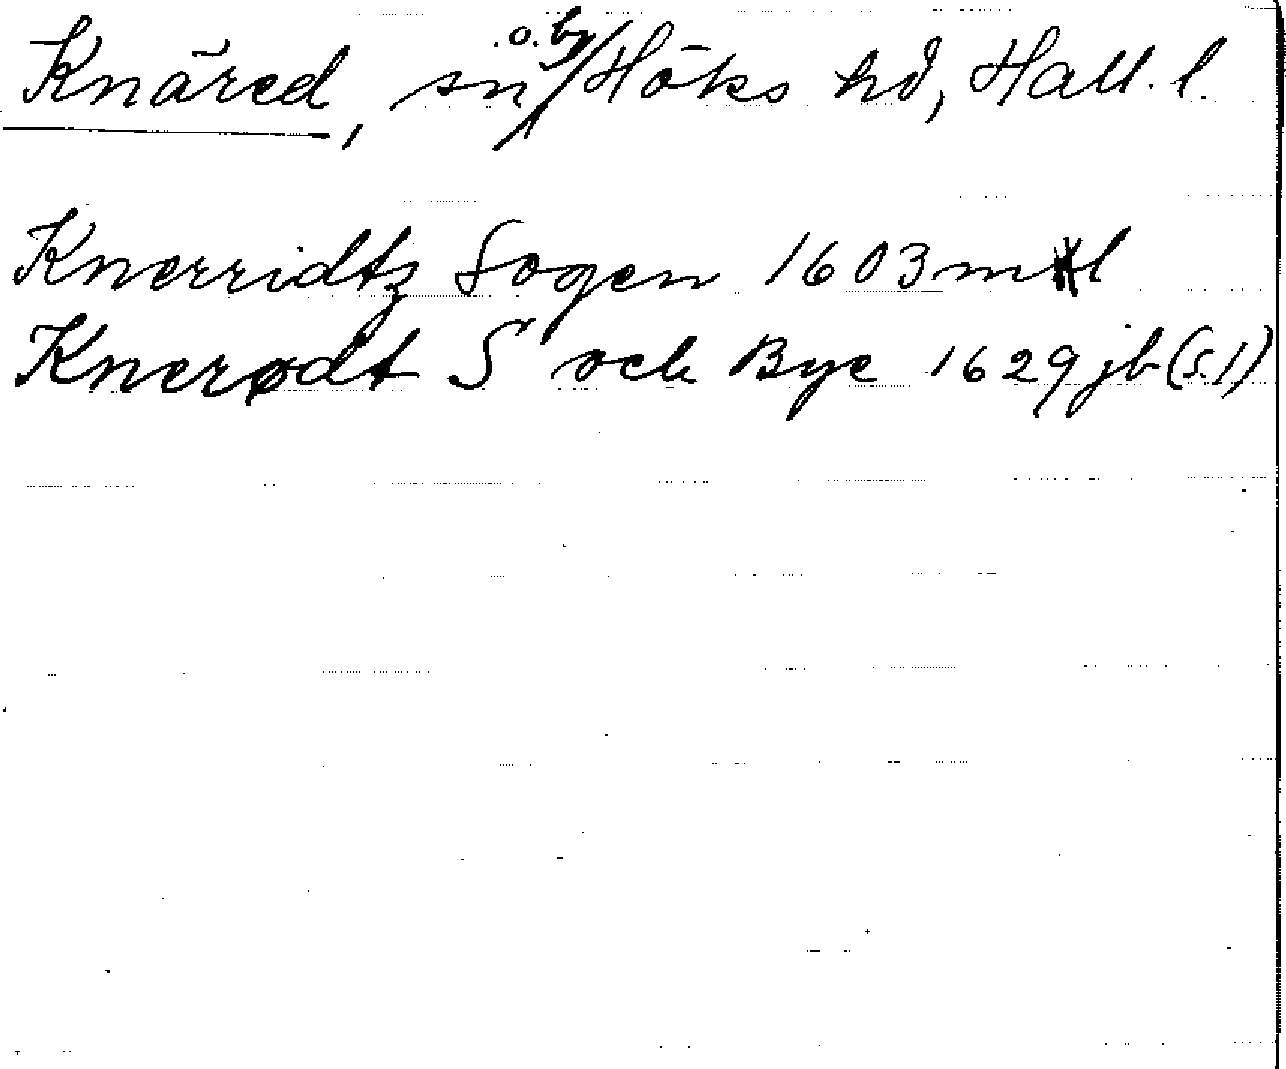 Knäred, sn o. by Höks hd, Hall. l.
Knerridtz Sogen 1603 mtl
Knerødt S och Bye 1629 jb (s. 1)